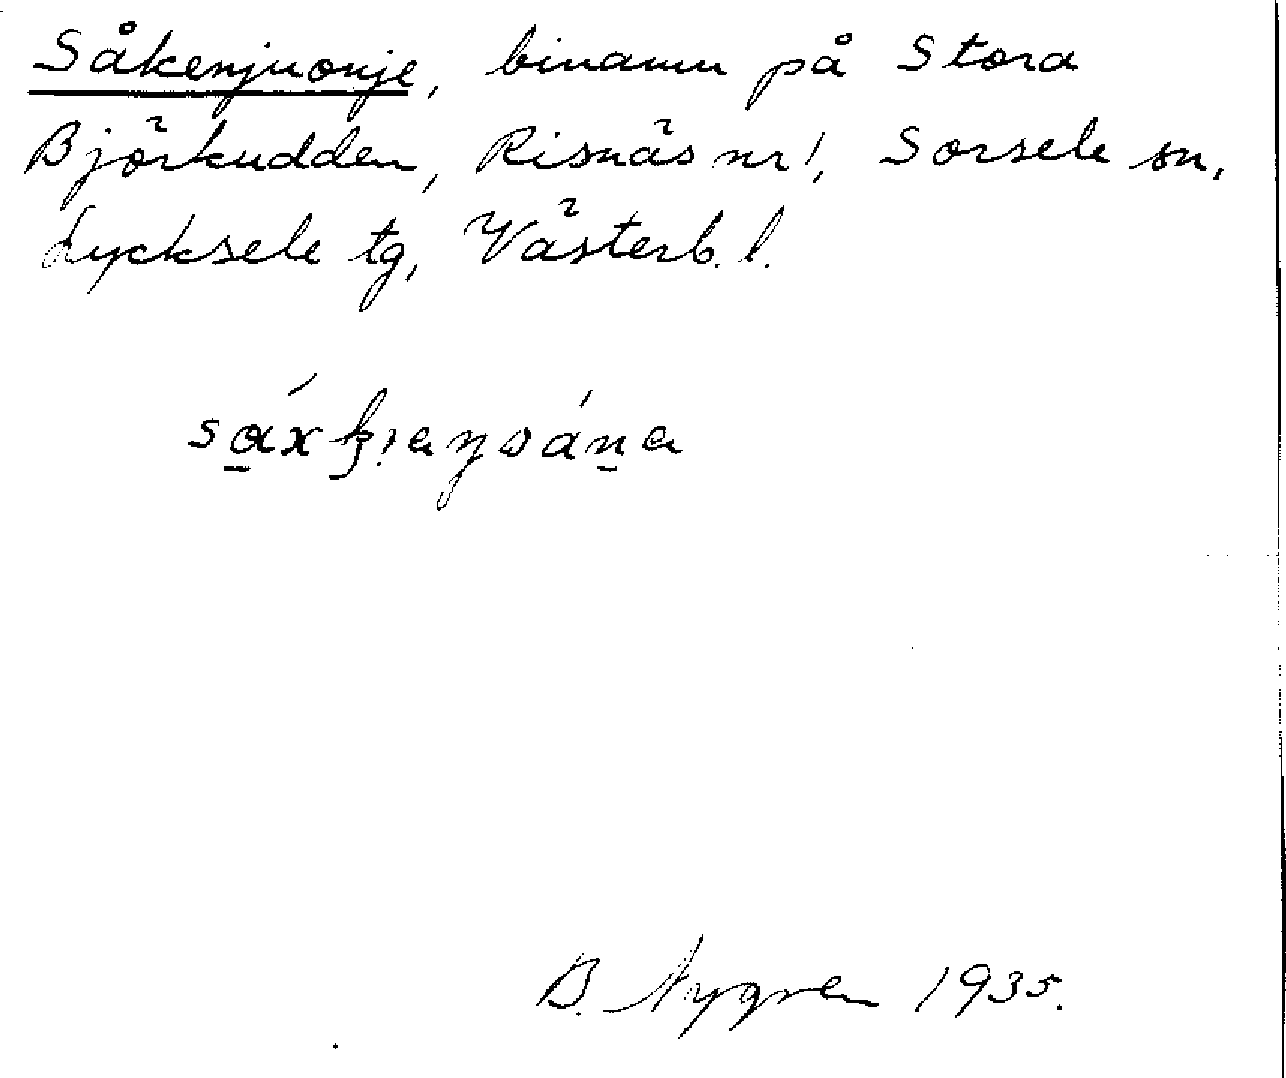 Såkenjuonje, binamn på Stora
Björkudden, Risnäs nr 1, Sorsele sn,
Lycksele tg, Västerb. l.
B. Nygren 1935.